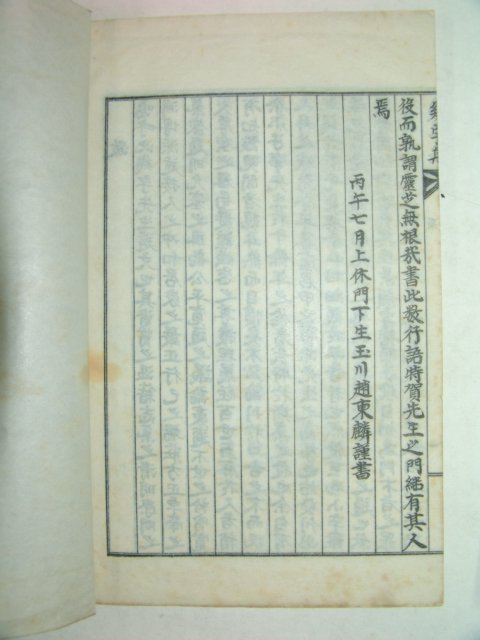 後而孰謂靈芝無根哉書此數行語特賀先生之門緖有其人
焉
丙午七月上休門下生玉川趙東麟謹書